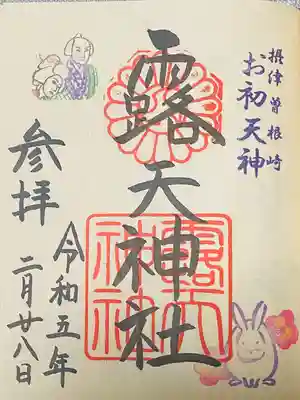 摂津曽根崎
お初天神
露天神社
参拝
令和五年
二月廿八日